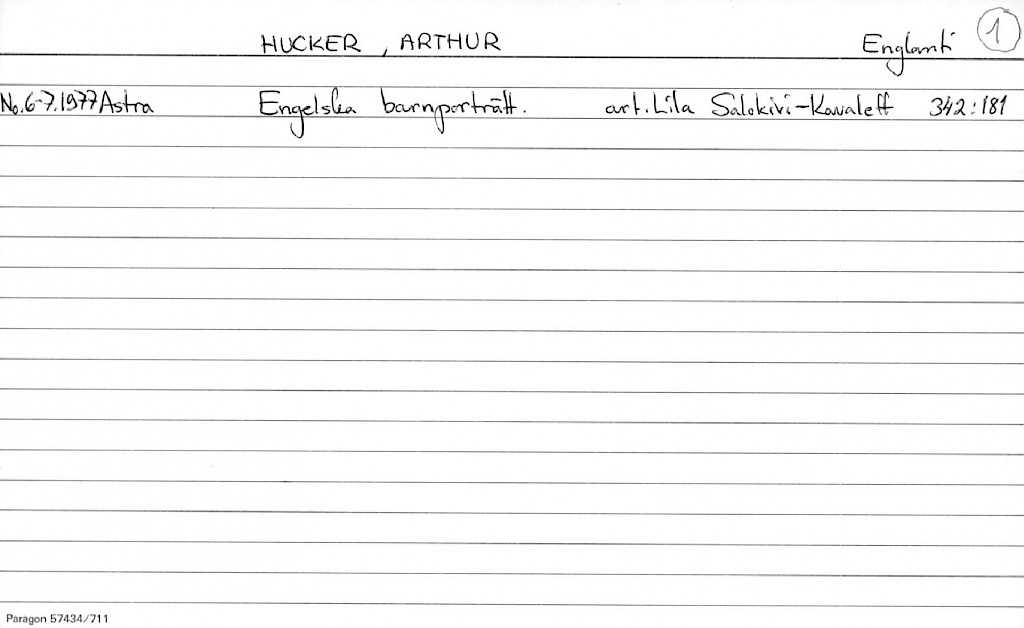 HUCKER, ARTHUR Englanti 1
No.6-7.1977 Astra Engelska barnporträtt. art. Lila Salokivi-Kavaleff 342:181
Paragon 57434/711